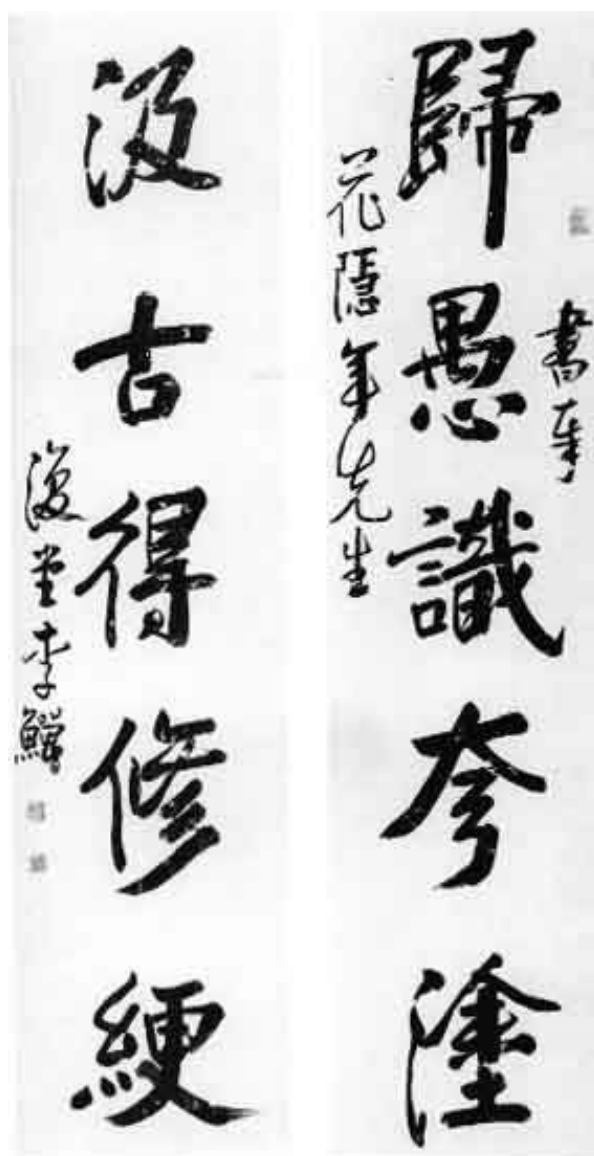 歸愚識夸塗
書奉
花隱年先生
汲古得修綆
復堂李鱓